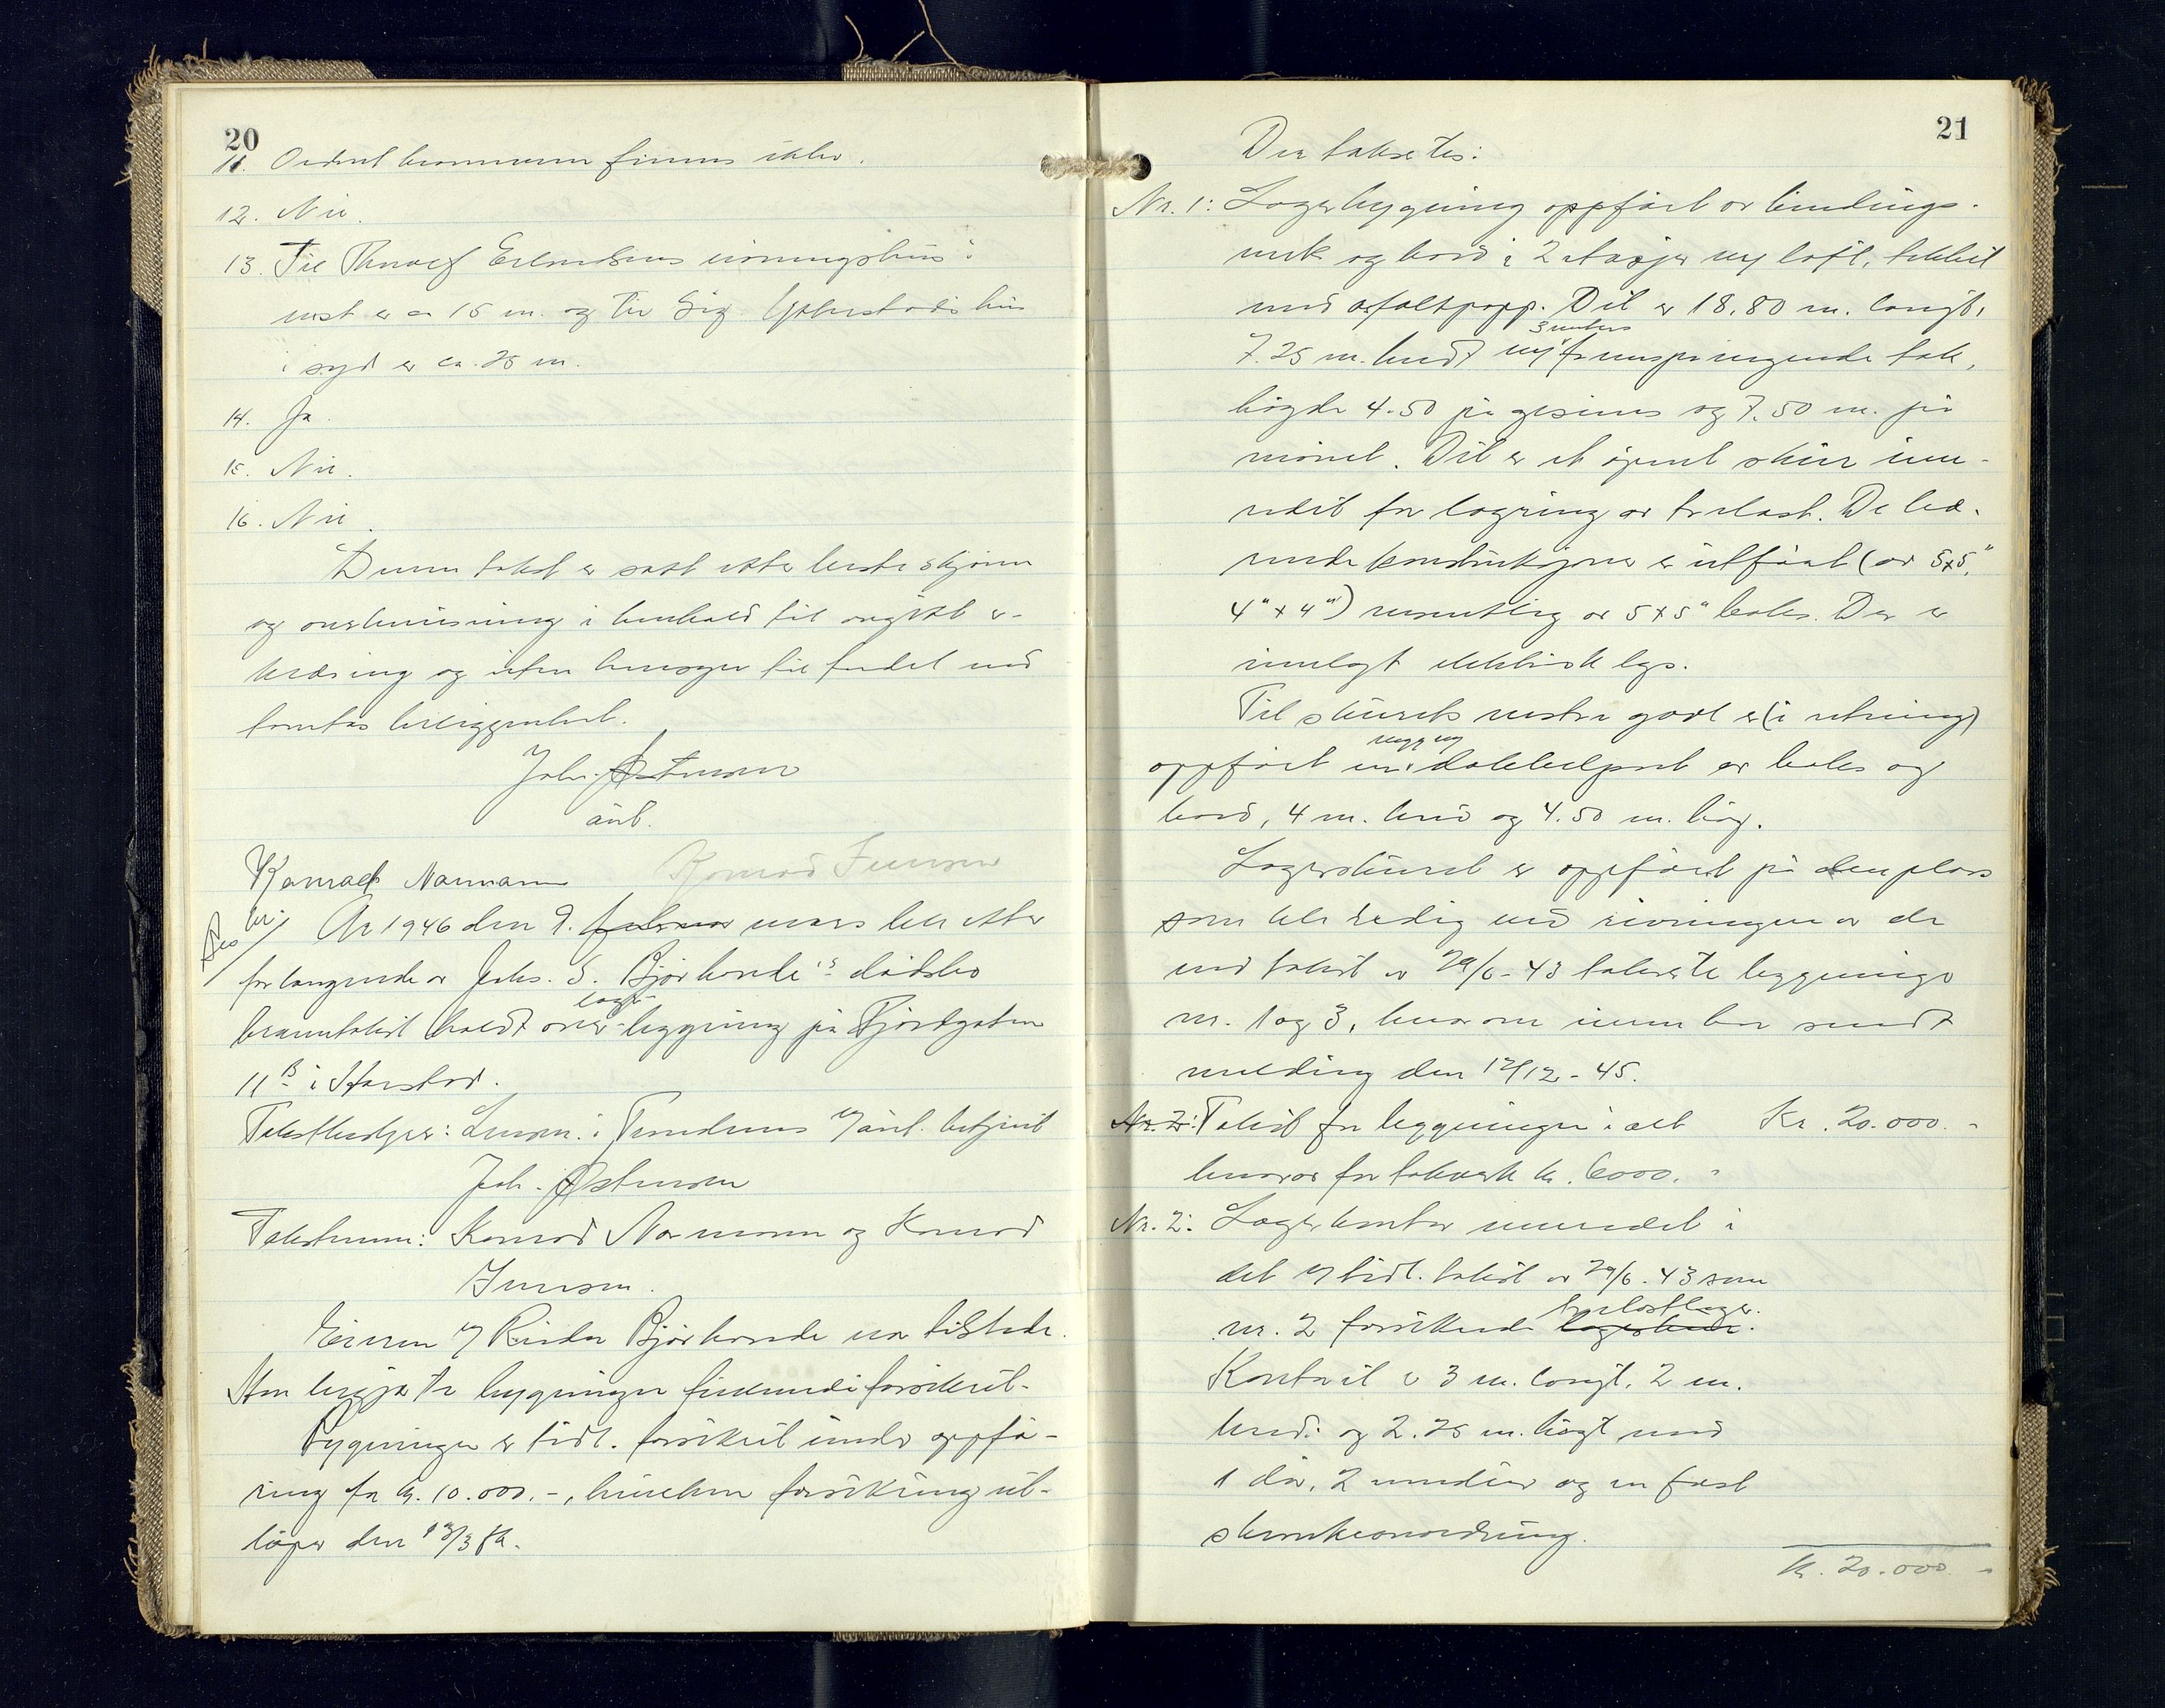 20
11. Ordnet brannvern finnes ikke.
12. Nei.
13. Til Thoralf Erlandsens våningshus i
vest er ca 15 m. og til Sig. hus
i syd er ca. 25 m.
14. Ja.
15. Nei.
16. Nei.
Denne takst er satt etter beste skjønn
og overbevisning i henhold til avgitt er-
klæring og uten hensyn til fordel ved
tomtas beliggenhet.
Joh. Østensen
aut.
Konrad Normann Konrad Jensen
År 1946 den 9. februar mars ble etter
forlangende av Johs. S. Bjørkonde's dødsbo
branntakst holdt over lager-bygning på Fjordgaten
11 B i Harstad.
Takstbestyrer: Lensm. i Trondenes v/ aut. betjent
Joh. Østensen
Takstmenn: Konrad Normann og Konrad
Jensen.
Eieren v/ Reidar Bjørkonde var tilstede.
Han begjærte bygningen forsikret.
Bygningen er tidl. forsikret under oppfø-
ring for kr. 10.000.-, hvilken forsikring ut-
løper den 13/3 fk.
21
Der takseres:
Nr. 1: Lagerbygning oppført av bindings-
verk og bord i 2 etasjer m/ loft, tekket
med asfaltpapp. Det er 18.80 m. langt,
7.25 m. bredt m/ 3 meters fremspringende tak,
høgde 4.50 på gesims og 7.50 m. på
mønet. Det er et åpent skur inn-
redet for lagring av trelast. De bæ-
rende konstruksjoner er utført (av 5x5"
4" x 4") vesentlig av 5 x 5" boks. Der er
innlagt elektrisk lys.
Til skurets vestre gavl er (i retning)
oppført en dobbelport av boks og
bord, 4 m. bred og 4.50 m. høg.
Lagerskuret er oppført på den plass
som ble ledig ved rivningen av de
ved takst av 29/6-43 takserte bygninger
nr. 1 og 3, hvorom innen ble sendt
melding den 12/12-45.
Nr. 2: Takst for bygningen i alt Kr. 20.000.-
herav for takverk kr. 6000.-
Nr. 2: Lagerkontor innredet i
det v/ tidl. takst av 29/6-43 som
nr. 2 forsikrede lagerbod trelastlager.
Kontoret er 3 m. langt, 2 m.
bred og 2.25 m. høgt med
1 dør, 2 vinduer og en fast
skrankeanordning.
kr. 20.000.-